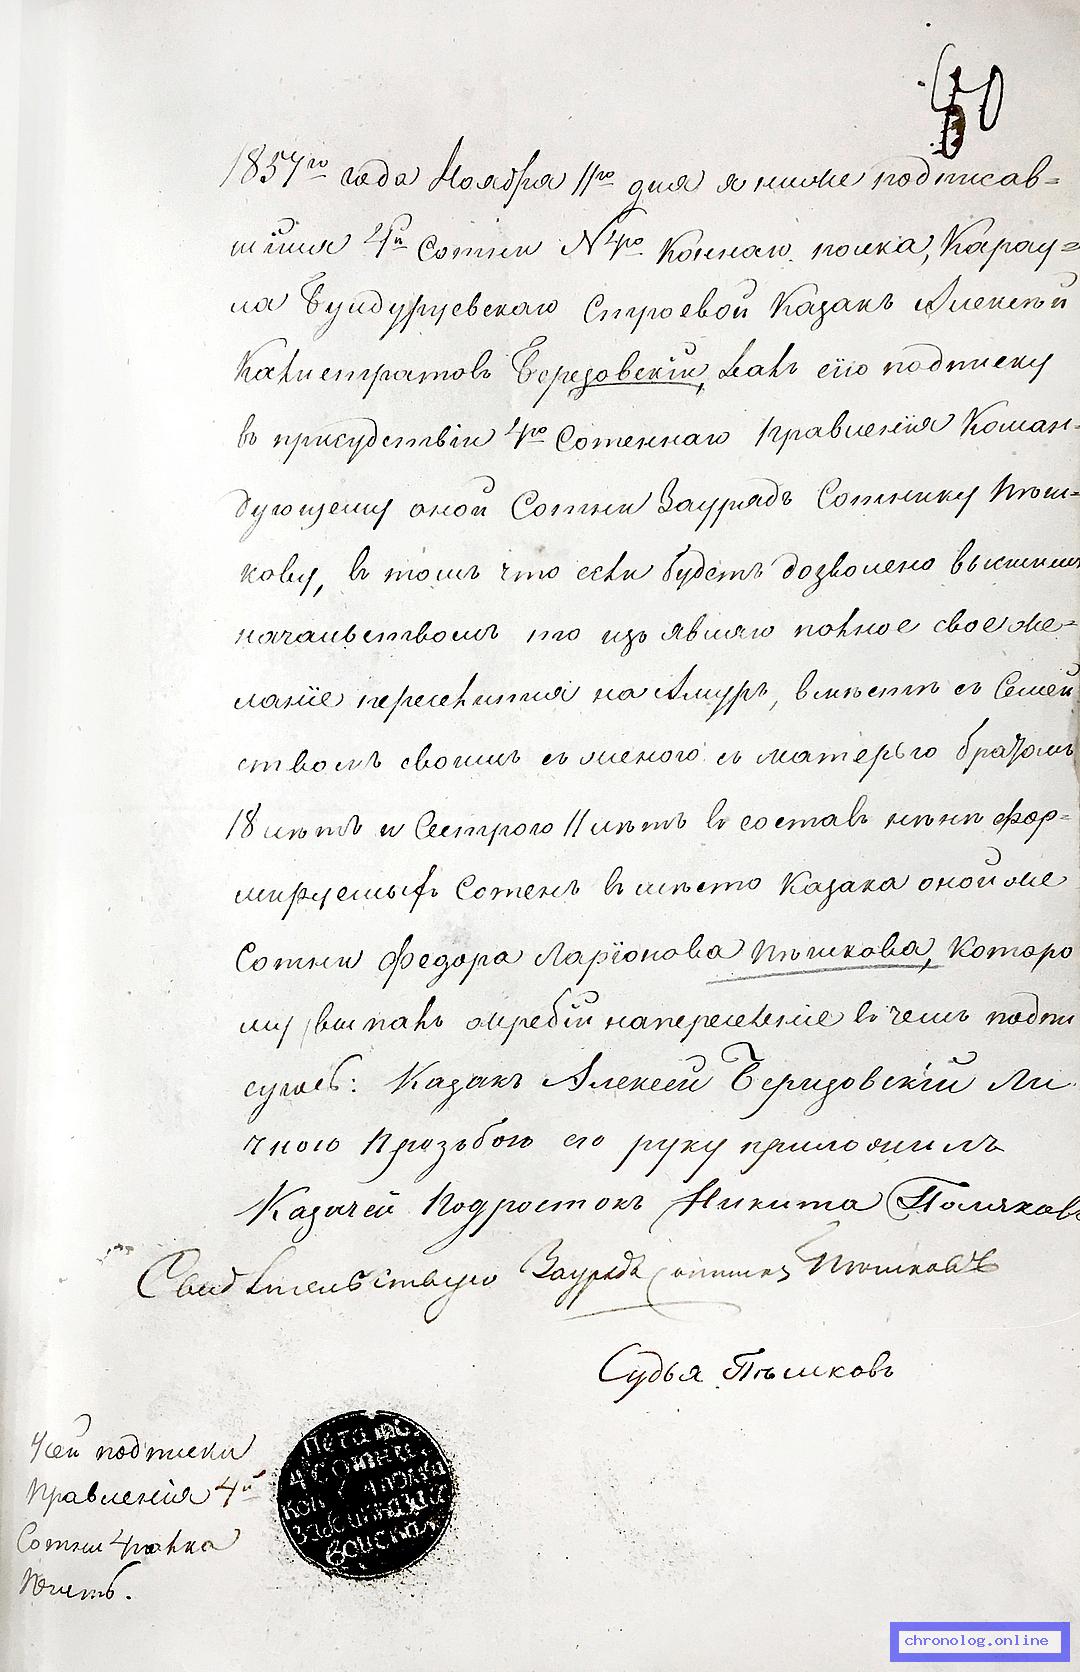 50
1857го года Ноября 11го дня я ниже подписав=
шийся 4й Сотни №4го Коннаго полка, Карау=
ла Бундуруевскаго Строевой Казакъ Алексѣй
Калистратовъ Березовскій, далъ сію подписку
въ присудствіи 4го Сотеннаго правленія Коман=
дующему оной Сотни Заурядъ Сотнику Пѣш=
кову, въ томъ что если будетъ дозволено высшимъ
начальствомъ то изъявляю полное свое же=
ланіе переселится на Амуръ, вмѣсте съ Семей
ствомъ своимъ съ женою съ матерью братомъ
18 лѣтъ и Сестрою 11 лѣтъ въ составъ нынѣ фор=
мируемыхъ Сотенъ вмѣсто Казака оной же
Сотни Федора Ларіонова Пѣшкова, Которо
му выпалъ жребій на переселеніе въ чемъ подпи
суюсь: Казакъ Алексей Беризовскій Ли
чною Прозьбою его руку приложилъ
Казачей Подростокъ Никита Поляковъ
Свидѣтельствую Заурядъ Сотникъ Пѣшковъ
Судья Пѣшковъ
К сей подписки
правленія 4й
Сотни 4 полка
печать.
Печать
4 Сотни
Кон. 4 полка
Забайкальск
войска
chronolog.online